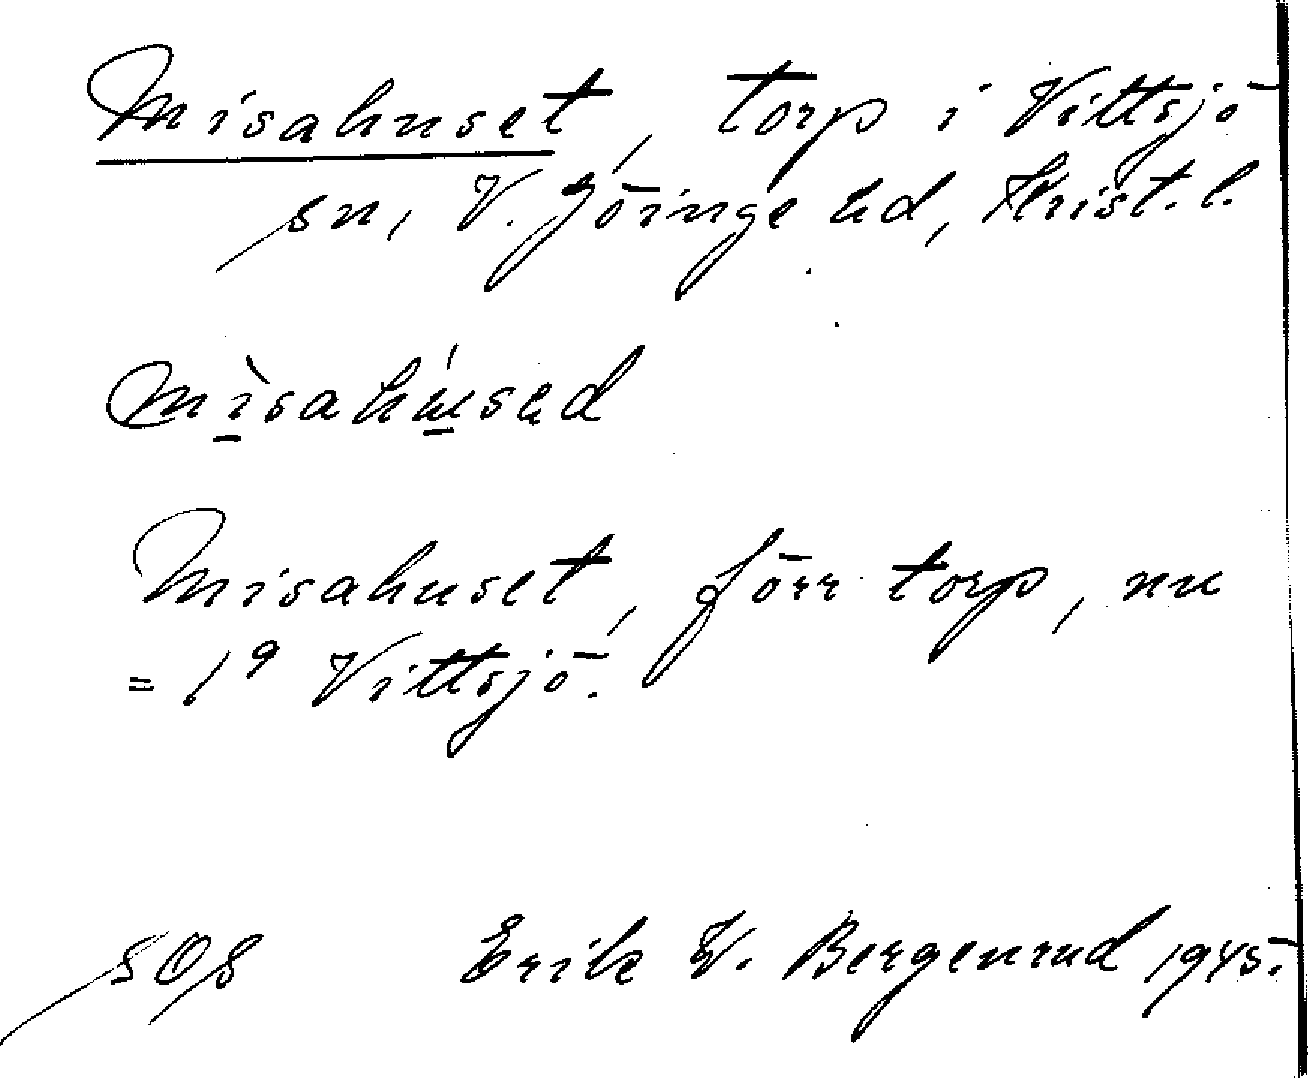 Misahuset, torp i Vittsjö
sn, V. Göinge hd, Krist. l.
mìsahúsed
Misahuset, förr torp, nu
= 1⁹ Vittsjö.
SOS Erik W. Bergenrud 1945.